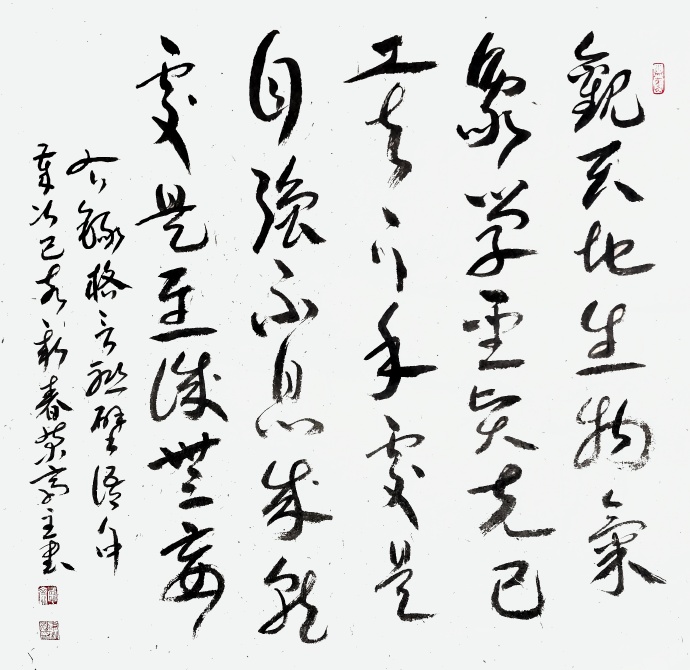 觀天地生物氣
象學聖賢克己
工夫下手處是
自強不息成就
處是至誠無妄
右錄格言聯璧語句
歲次己亥新春主書